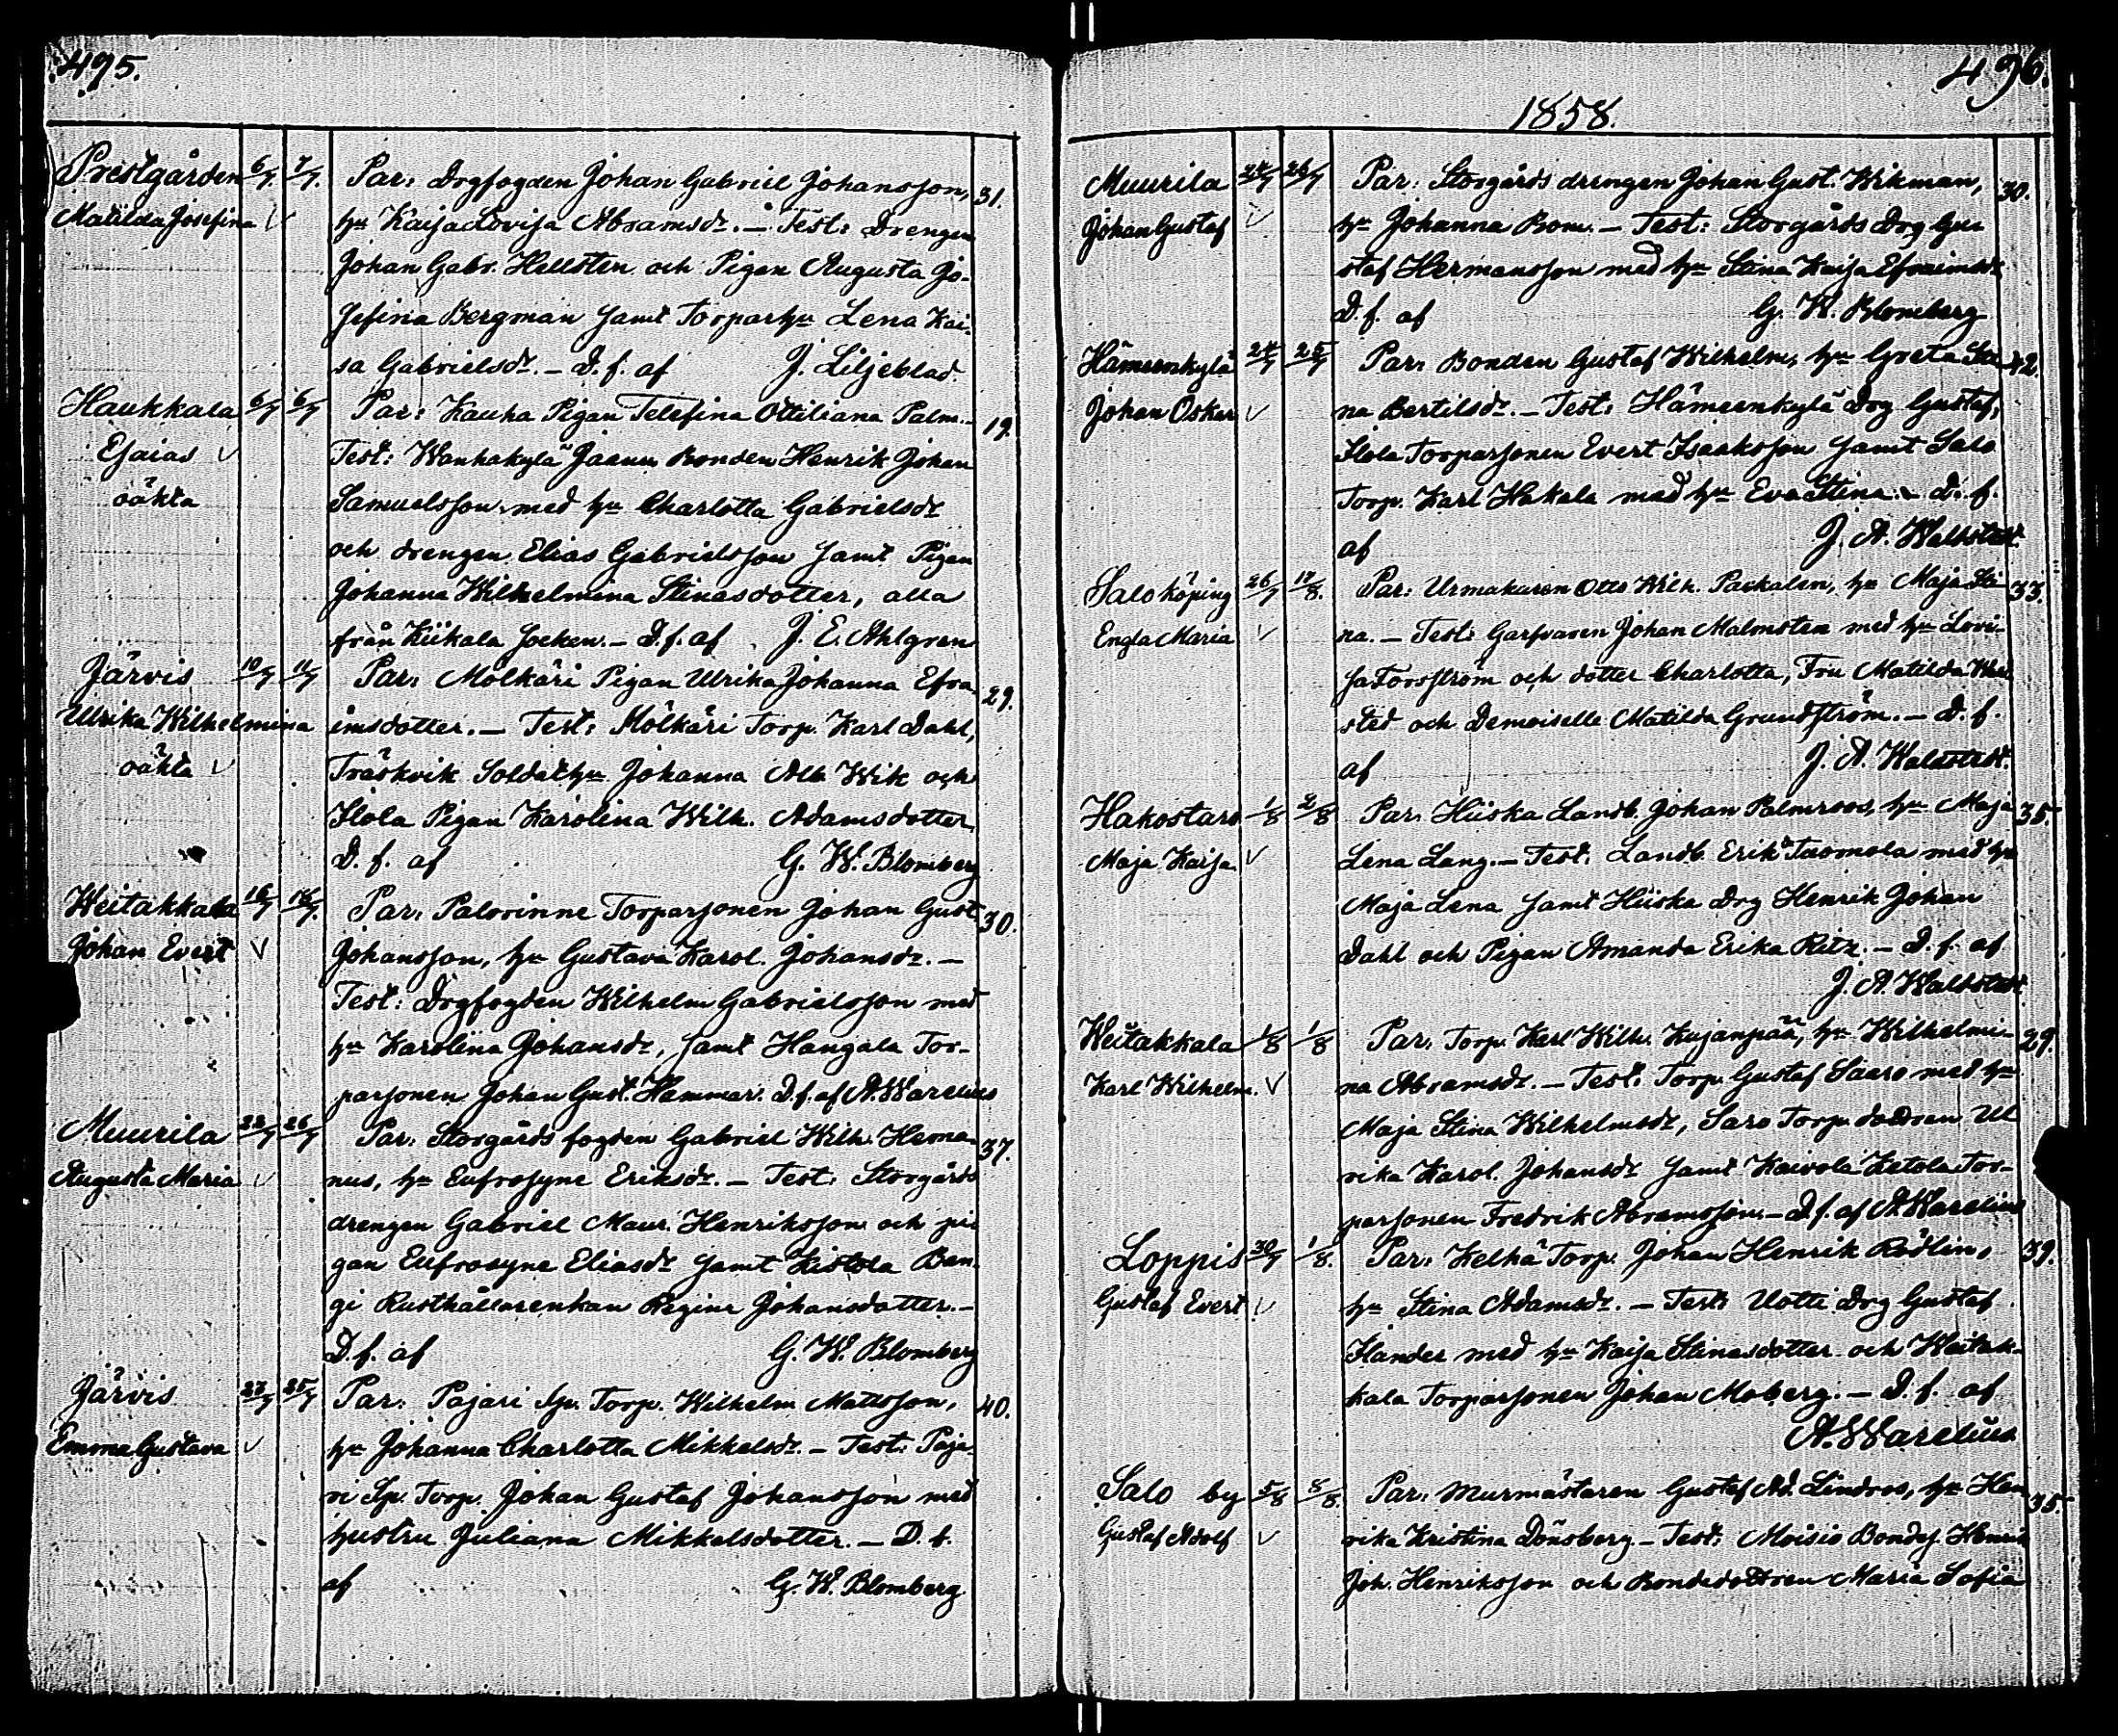 495.
Prestgården 6/7. 7/7. Par: Drgfogden Johan Gabriel Johansson, 31.
Matilda Josefina √ hu Kaisa Lovisa Abramsdr. – Test: Drengen
Johan Gabr. Hellsten och Pigan Augusta Jo-
sefina Bergman samt Torparhu Lena Kai-
sa Gabrielsdr. – D. f. af J. Liljeblad
Haukkala 6/7 6/7 Par: Kauha Pigan Telefina Ottiliana Palm. – 19.
Esaias √ Test: Wanhakylä Jaanu Bonden Henrik Johan
oäkta Samuelsson med hu Charlotta Gabrielsdr
och drengen Elias Gabrielsson samt Pigan
Johanna Wilhelmina Stinasdotter, alla
från Kiikala Socken. – D. f. af J. E. Ahlgren
Järvis 10/7 11/7 Par: Mölkäri Pigan Ulrika Johanna Efra- 29.
Ulrika Wilhelmina imsdotter. – Test: Mölkäri Torp. Karl Dahl,
oäkta √ Träskvik Soldathu Johanna Alb. Wik och
Ilola Pigan Karolina Wilh. Adamsdotter.
D. f. af G. W. Blomberg
Weitakkala 16/7 18/7. Par: Palorinne Torparsonen Johan Gust. 30.
Johan Evert √ Johansson, hu Gustava Karol. Johansdr. –
Test: Drgfogden Wilhelm Gabrielsson med
hu Karolina Johansdr, samt Hangala Tor-
parsonen Johan Gust. Hammar. D. f. af A. Warelius
Muurila 22/7 26/7 Par: Storgårds fogden Gabriel Wilh. Hema- 37.
Augusta Maria √ nus, hu Eufrosyne Eriksdr. – Test: Storgårds
drengen Gabriel Maur. Henriksson och pi-
gan Eufrosyne Eliasdr samt Kistola Ban-
gi Rusthållarenkan Regina Johansdotter. –
D. f. af G. W. Blomberg
Järvis 23/7 25/7 Par: Pajari Sp. Torp. Wilhelm Mattsson, 40.
Emma Gustava √ hu Johanna Charlotta Mikkelsdr. – Test: Paja-
ri Sp. Torp. Johan Gustaf Johansson med
hustru Juliana Mikkelsdotter. – D. f.
af G. W. Blomberg
496.
1858.
Muurila 24/7 26/7 Par: Storgårds drengen Johan Gust. Wikman, 30.
Johan Gustaf √ hu Johanna Bom. – Test: Storgårds Drg Gu-
staf Hermansson med hu Stina Kaisa Efraimsdr
D. f. af G. W. Blomberg
Hämeenkylä 24/7 25/7 Par: Bonden Gustaf Wilhelm, hu Greta Sti- 42.
Johan Oskar √ na Bertilsdr. – Test: Hämeenkylä Drg Gustaf,
Ilola Torparsonen Evert Isaksson samt Salo
Torp. Karl Hakala med hu Eva Stina. – D. f.
af J. A. Waldstedt.
Salo köping 26/7 17/8. Par: Urmakaren Otto Wilh. Packalen, hu Maja Sti- 33.
Engla Maria √ na. – Test: Garfvaren Johan Malmsten med hu Lovi-
sa Forsström och dotter Charlotta, Fru Matilda
sted och Demoiselle Matilda Grundström. – D. f.
af J. A. Waldstedt.
Hakostaro 1/8 2/8 Par: Hiiska Landb. Johan Palmroos, hu Maja 35.
Maja Kaisa √ Lena Lang. – Test: Landb. Erik Tuomola med hu
Maja Lena samt Hiiska Drg Henrik Johan
Dahl och Pigan Amanda Erika Ritz. – D. f. af
J. A. Waldstedt.
Weitakkala 1/8 1/8 Par: Torp. Karl Wilh. Kujanpää, hu Wilhelmi- 29.
Karl Wilhelm. √ na Abramsdr. – Test: Torp. Gustaf Saaro med hu
Maja Stina Wilhelmsdr, Saro Torp. dottren Ul
rika Karol. Johansdr samt Kaivola Ketola Tor-
parsonen Fredrik Abramsson. – D. f. af A. Warelius
Loppis 30/7 1/8. Par: Kelhä Torp. Johan Henrik Rödlin, 39.
Gustaf Evert √ hu Stina Adamsdr. – Test: Uotti Drg Gustaf
Ilander med hu Kaisa Stinasdotter och Weitak-
kala Torparsonen Johan Moberg. – D. f. af
A. Warelius
Salo by 5/8 8/8. Par: Murmästaren Gustaf Ad. Lindroos, hu Hen 35.
Gustaf Adolf √ rika Kristina Dönsberg. – Test: Moisio Bondes. Henrik
Joh. Henriksson och Bondedottren Maria Sofia